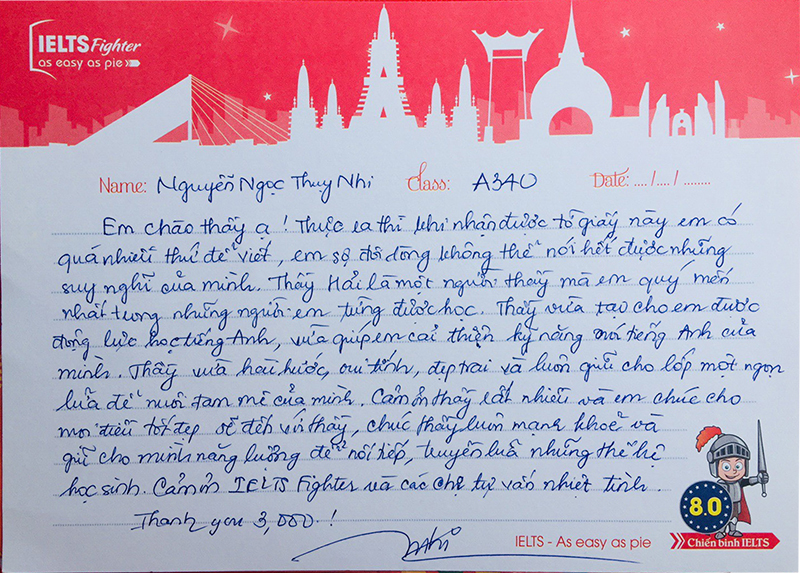 IELTS Fighter
as easy as pie
Name: Nguyễn Ngọc Thuỵ Nhi Class: A340 Date: ..../..../........
Em chào thầy ạ! Thực ra thì khi nhận được tờ giấy này em có
quá nhiều thứ để viết, em sợ đôi dòng không thể nói hết được những
suy nghĩ của mình. Thầy Hải là một người thầy mà em quý mến
nhất trong những người em từng được học. Thầy vừa tạo cho em được
động lực học tiếng Anh, vừa giúp em cải thiện kỹ năng nói tiếng Anh của
mình. Thầy vừa hài hước, vui tính, đẹp trai và luôn giữ cho lớp một ngọn
lửa để nuôi đam mê của mình. Cảm ơn thầy rất nhiều và em chúc cho
mọi điều tốt đẹp sẽ đến với thầy, chúc thầy luôn mạnh khoẻ và
giữ cho mình năng lượng để nối tiếp, truyền lửa những thế hệ
học sinh. Cảm ơn IELTS Fighter và các chị tư vấn nhiệt tình.
Thank you 3,000!
8.0
IELTS - As easy as pie Chiến binh IELTS